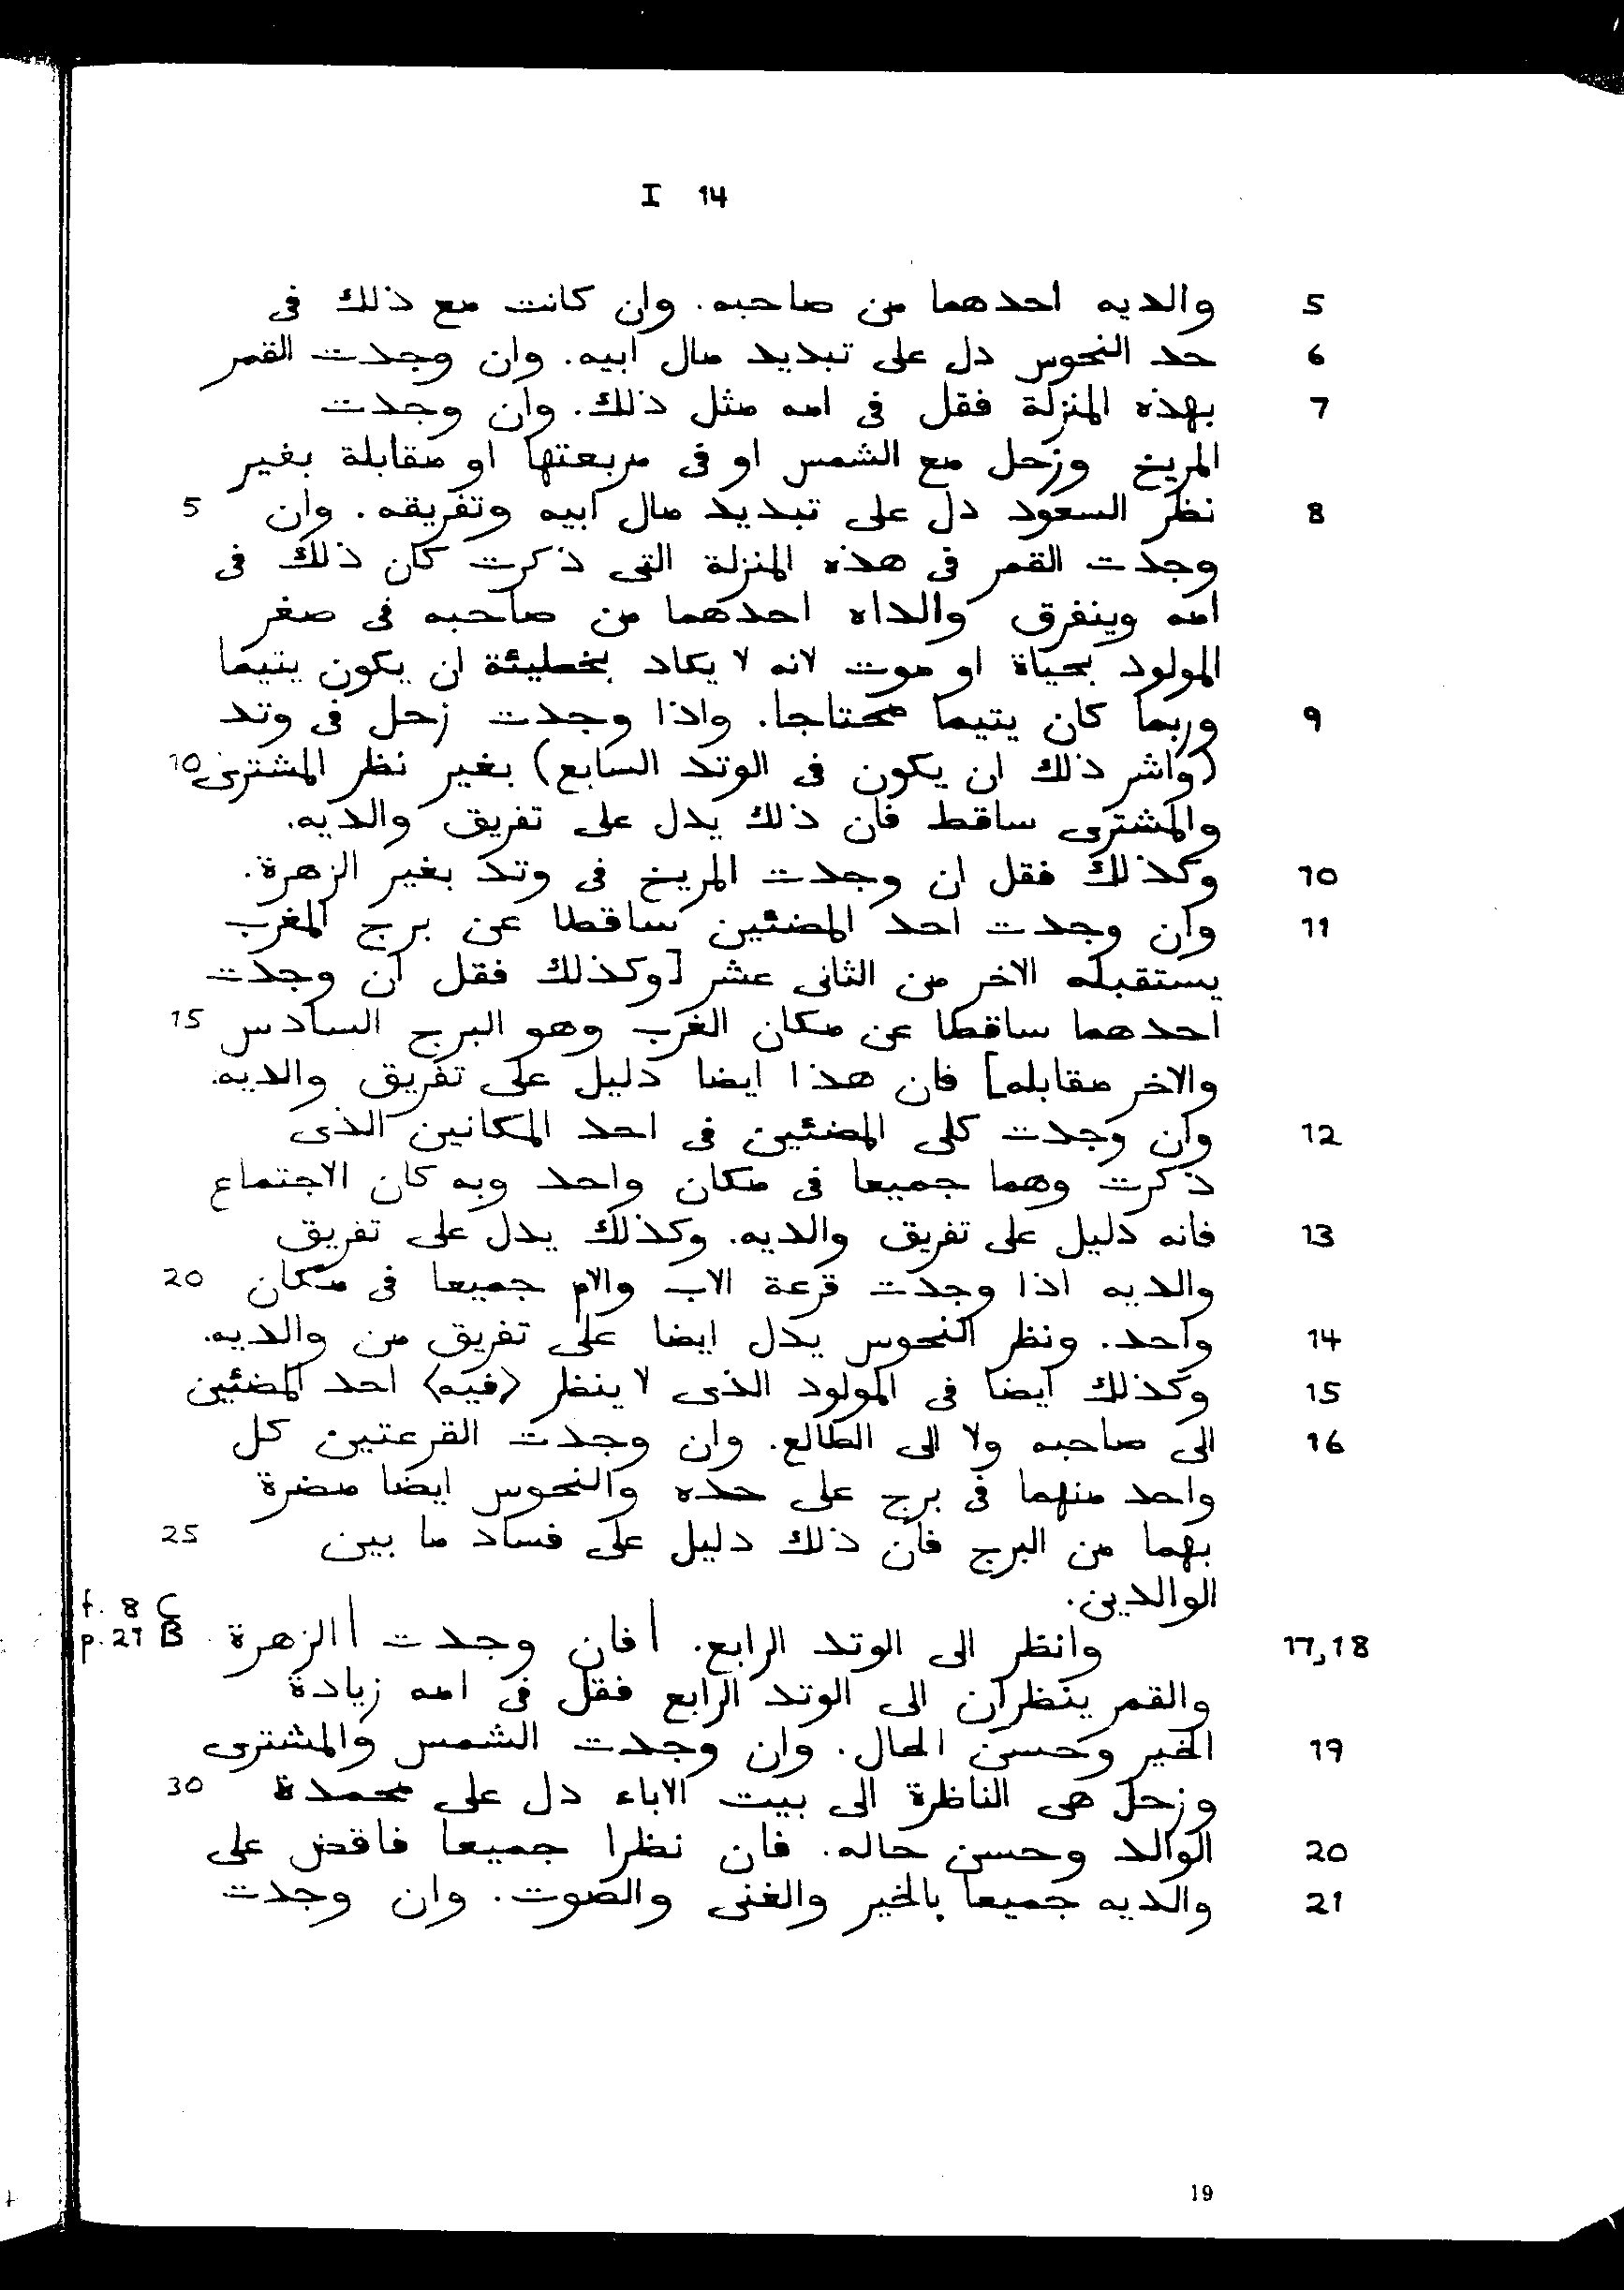 I 14
5 والديه احدهما من صاحبه. وان كانت مع ذلك فى
6 حد النحوس دل على تبديد مال ابيه. وان وجدت القمر
7 بهذه المنزلة فقل فى امه مثل ذلك. وان وجدت
المريخ وزحل مع الشمس او فى مربعتها او مقابلة بغير
8 نظر السعود دل على تبديد مال ابيه وتفريقه. وان 5
وجدت القمر فى هذه المنزلة التى ذكرت كان ذلك فى
امه ويتفرق والداه احدهما من صاحبه فى صغر
المولود بحياة او موت لانه لا يكاد بخطيئة ان يكون يتيما
9 وربما كان يتيما محتاجا. واذا وجدت زحل فى وتد
(واشر ذلك ان يكون فى الوتد السابع) بغير نظر المشترى 10
والمشترى ساقط فان ذلك يدل على تفريق والديه.
10 وكذلك فقل ان وجدت المريخ فى وتد بغير الزهرة.
11 وان وجدت احد المضئين ساقطا عن برج المغرب
يستقبله الاخر من الثانى عشر [وكذلك فقل ان وجدت
احدهما ساقطا عن مكان الغرب وهو البرج السادس 15
والاخر مقابله] فان هذا ايضا دليل على تفريق والديه.
12 وان وجدت كلى المضئين فى احد المكانين الذى
ذكرت وهما جميعا فى مكان واحد وبه كان الاجتماع
13 فانه دليل على تفريق والديه. وكذلك يدل على تفريق
والديه اذا وجدت قرعة الاب والام جميعا فى مكان 20
14 واحد. ونظر النحوس يدل ايضا على تفريق من والديه.
15 وكذلك ايضا فى المولود الذى لا ينظر ⟨فيه⟩ احد المضئين
16 الى صاحبه ولا الى الطالع. وان وجدت القرعتين كل
واحد منهما فى برج على حده والنحوس ايضا مضرة
بهما من البرج فان ذلك دليل على فساد ما بين 25
الوالدين.
17,18 وانظر الى الوتد الرابع. |فان وجدت |الزهرة f. 8 C p. 27 B
والقمر ينظران الى الوتد الرابع فقل فى امه زيادة
19 الخير وحسن الحال. وان وجدت الشمس والمشترى
وزحل هى الناظرة الى بيت الاباء دل على محمدة 30
20 الوالد وحسن حاله. فان نظرا جميعا فاقض على
21 والديه جميعا بالخير والغنى والصوت. وان وجدت
19